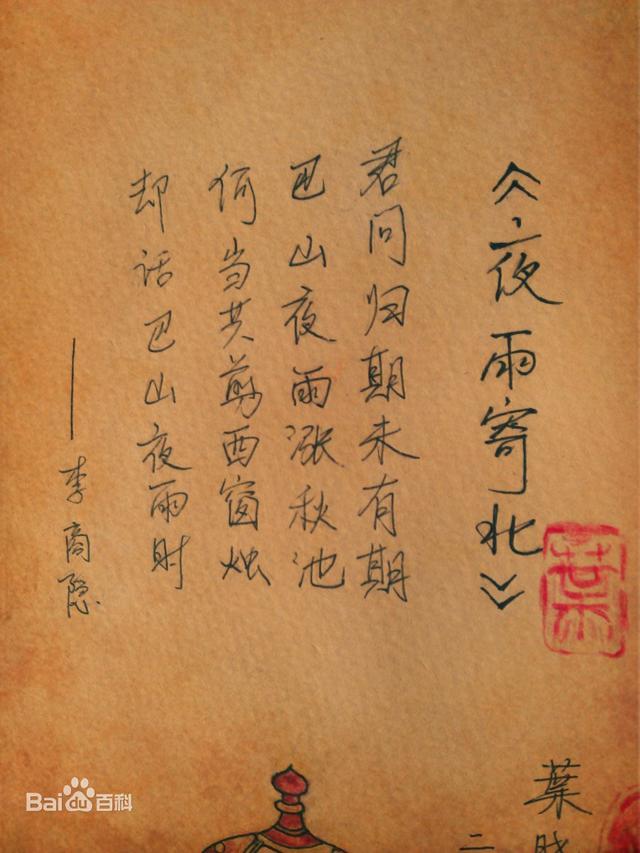 《夜雨寄北》
君问归期未有期
巴山夜雨涨秋池
何当共剪西窗烛
却话巴山夜雨时
——李商隐
葉
葉
二
Bai du 百科